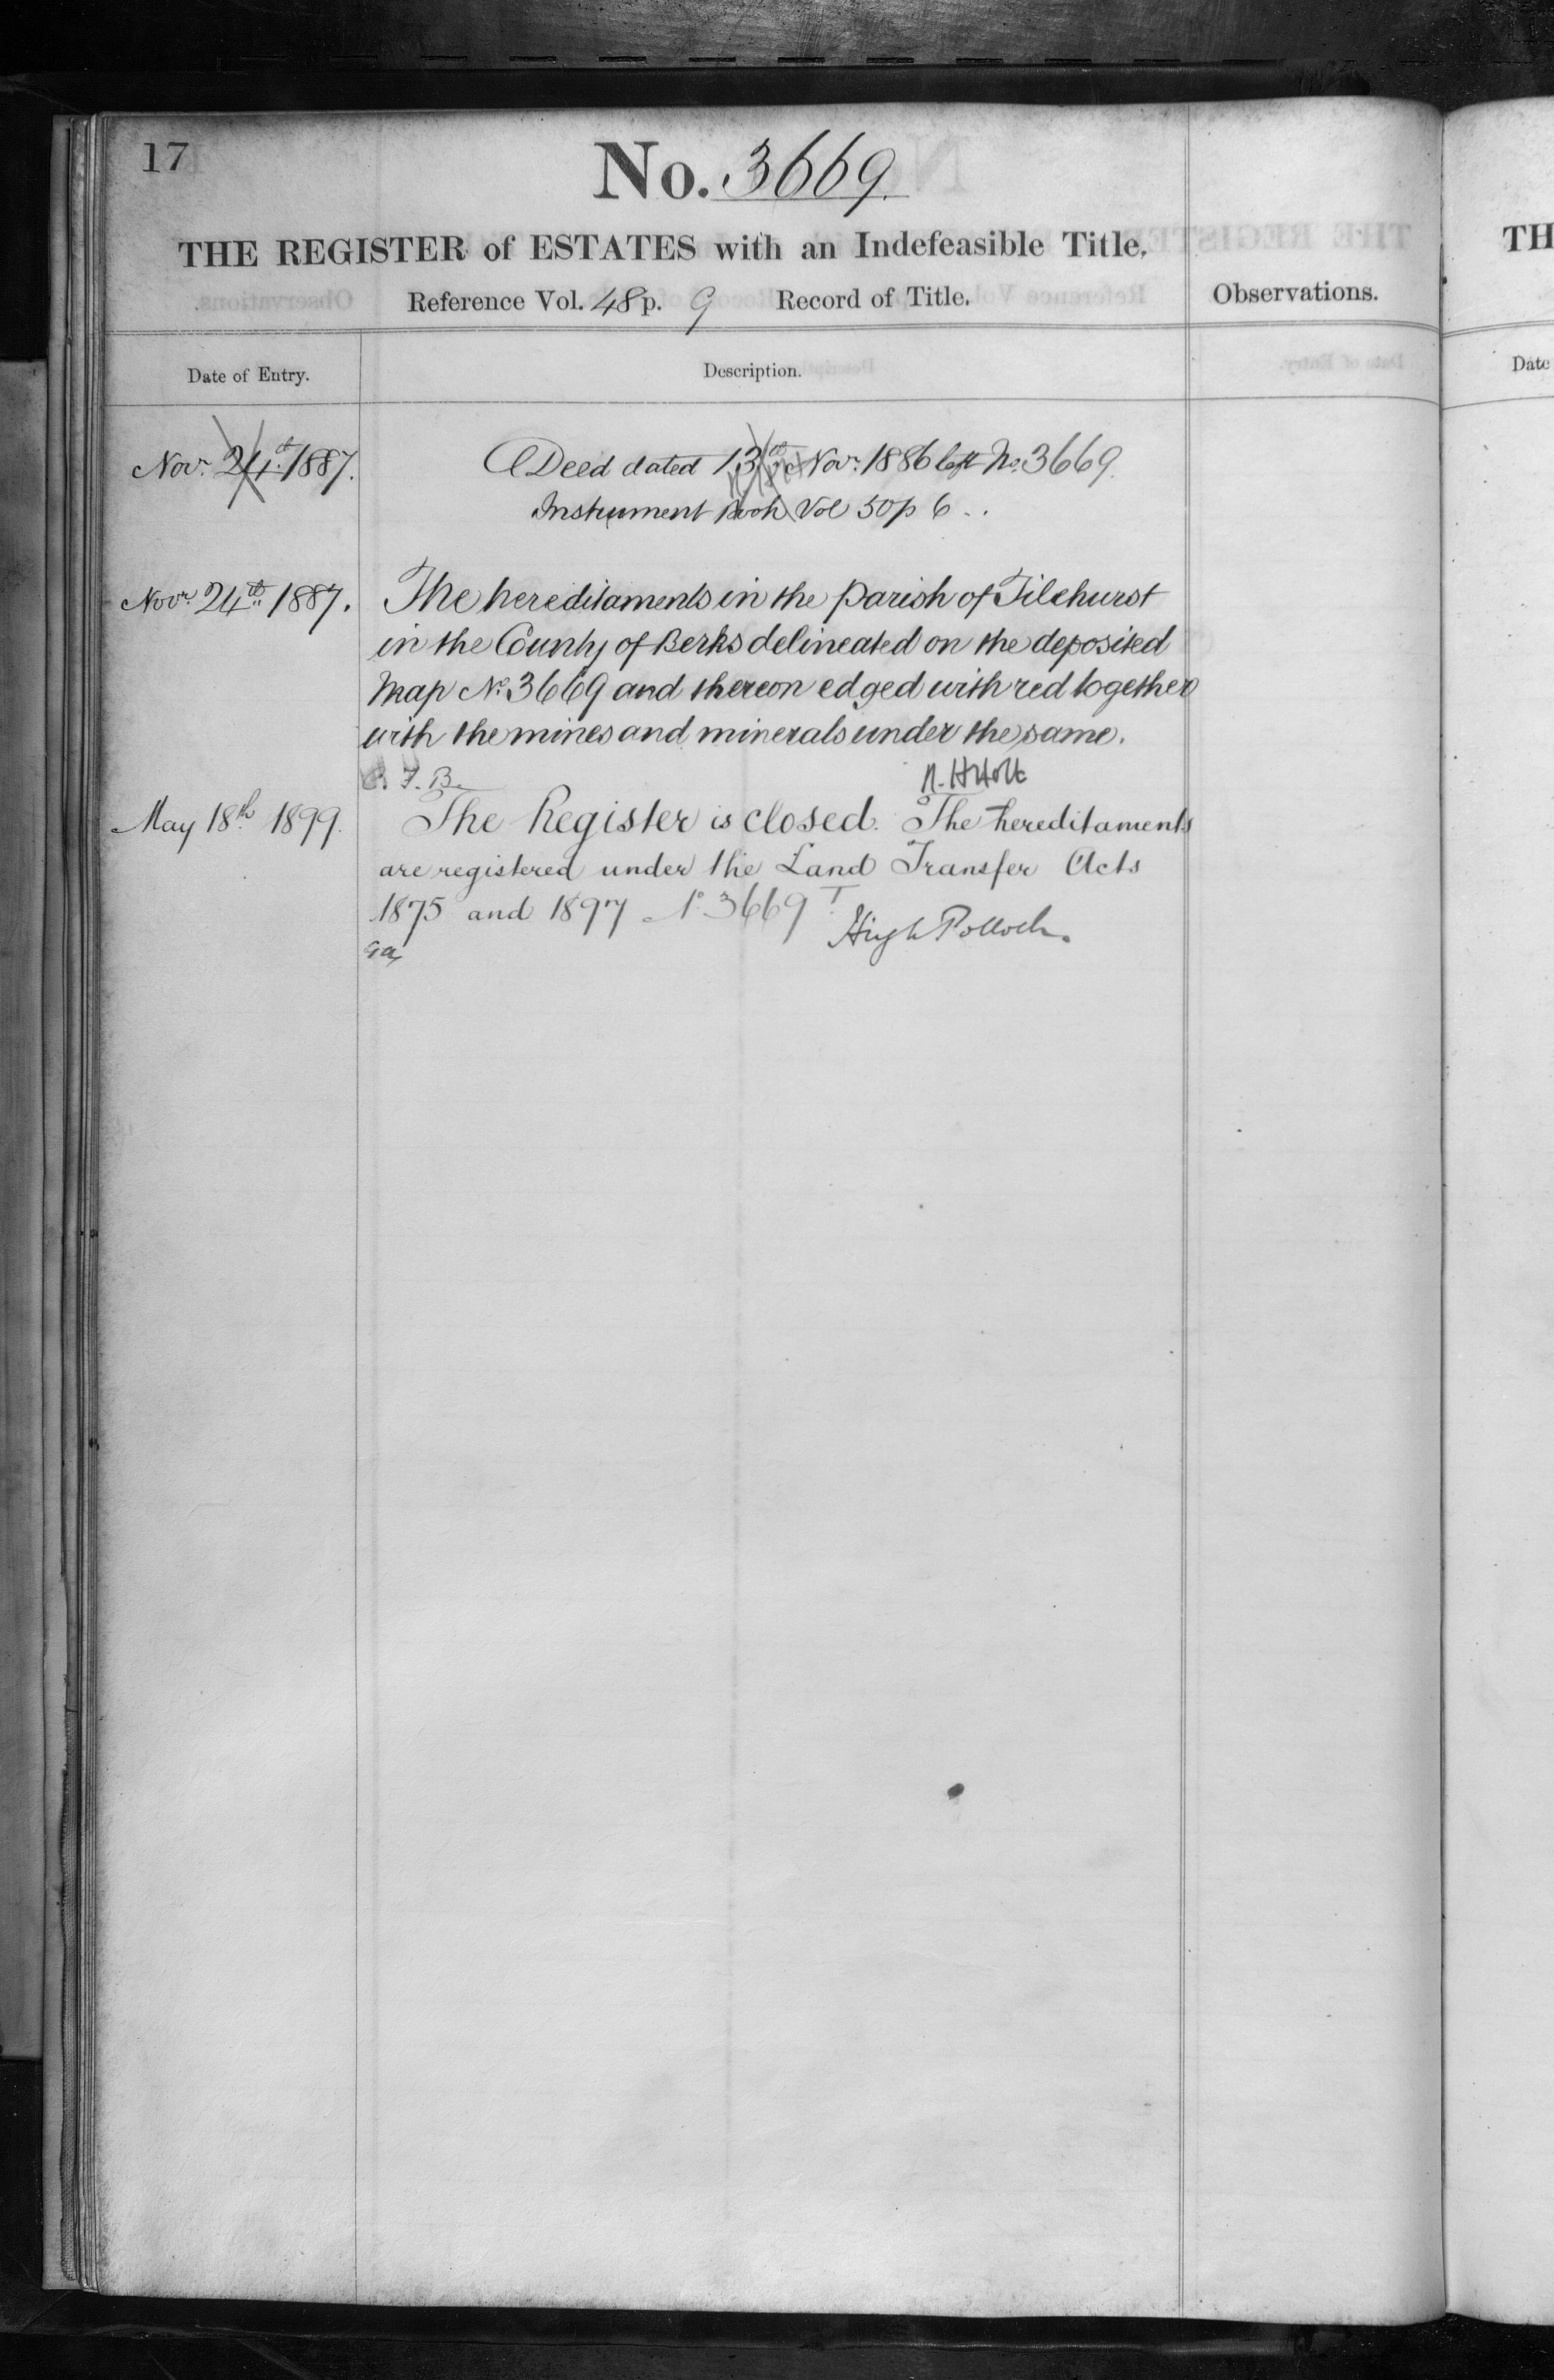 17
No. 3669.
THE REGISTER of ESTATES with an Indefeasible Title.
Reference Vol. 48 p. 9 Record of Title.
Observations.
Date of Entry.
Description.
Novr. 24th. 1887.
A Deed dated 13th Novr. 1886 left No. 3669.
Instrument Book Vol 50 p 6..
Novr. 24th. 1887.
The hereditaments in the Parish of Tilehurst
in the County of Berks delineated on the deposited
Map No. 3669 and thereon edged with red together
with the mines and minerals under the same.
F. B.
R. H Holt
May 18th 1899.
The Register is closed. The hereditaments
are registered under the Land Transfer Acts
1875 and 1897 No. 3669 T.
Hugh Pollock.
TH
Date